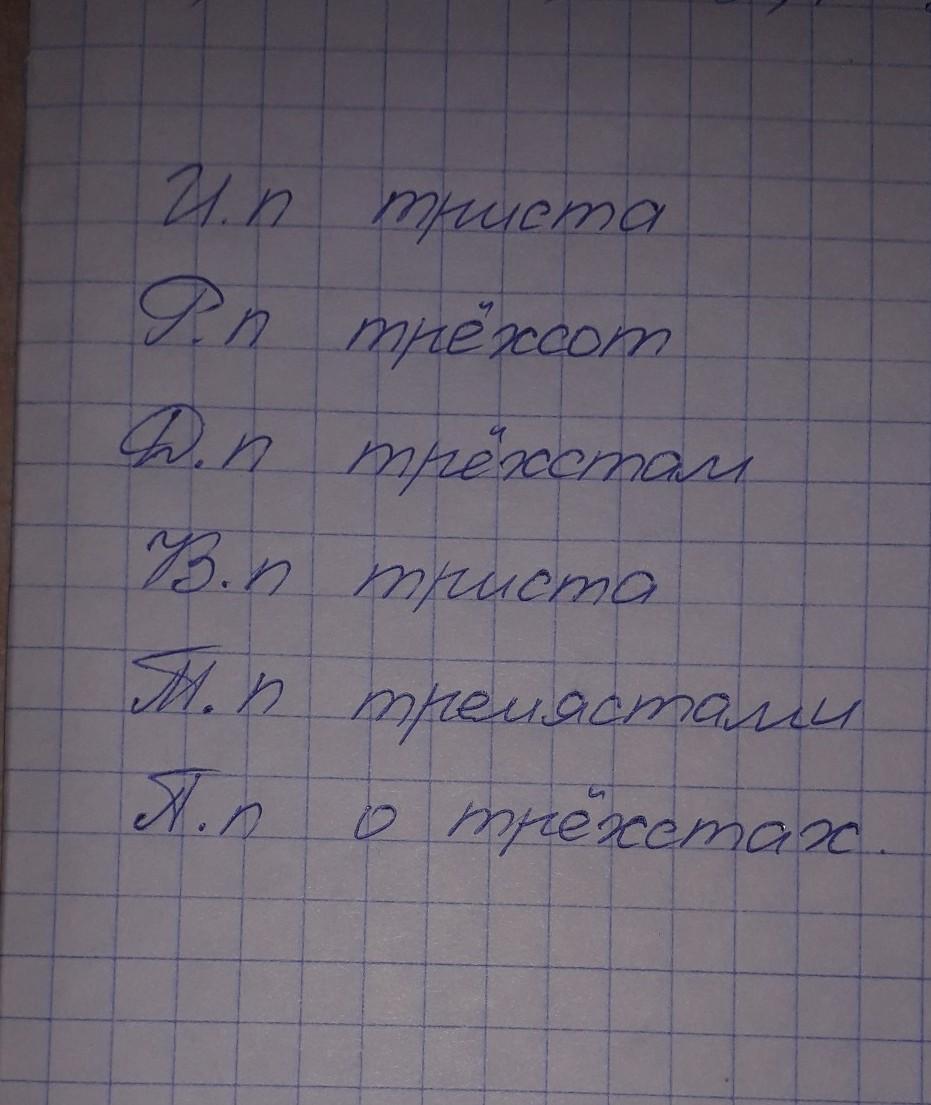 И.п триста
Р.п трёхсот
Д.п трёхстам
В.п триста
Т.п тремястами
П.п о трёхстах.